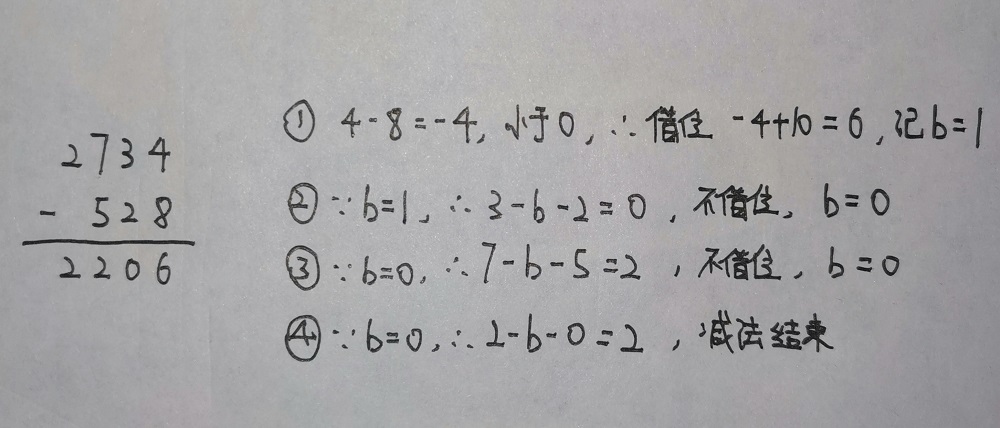 2734
- 528
2206
① 4-8=-4, 小于0, ∴借位 -4+10=6, 记b=1
② ∵b=1, ∴3-b-2=0, 不借位, b=0
③ ∵b=0, ∴7-b-5=2, 不借位, b=0
④ ∵b=0, ∴2-b-0=2, 减法结束